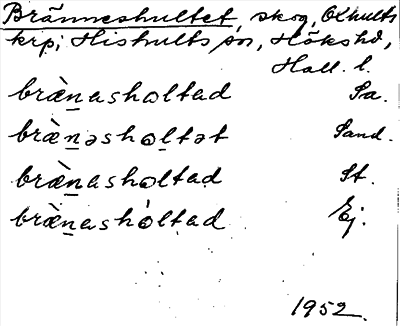 Bränneshultet, skog, Oxhults
krp; Hishults sn, Hökshd,
Hall. l.
bræ̀n̲asholtad Sa.
bræ̀n̲əshol̲tət Sand.
bræ̀n̲asholtad St.
bræ̀n̲ashòltad Ej.
1952.